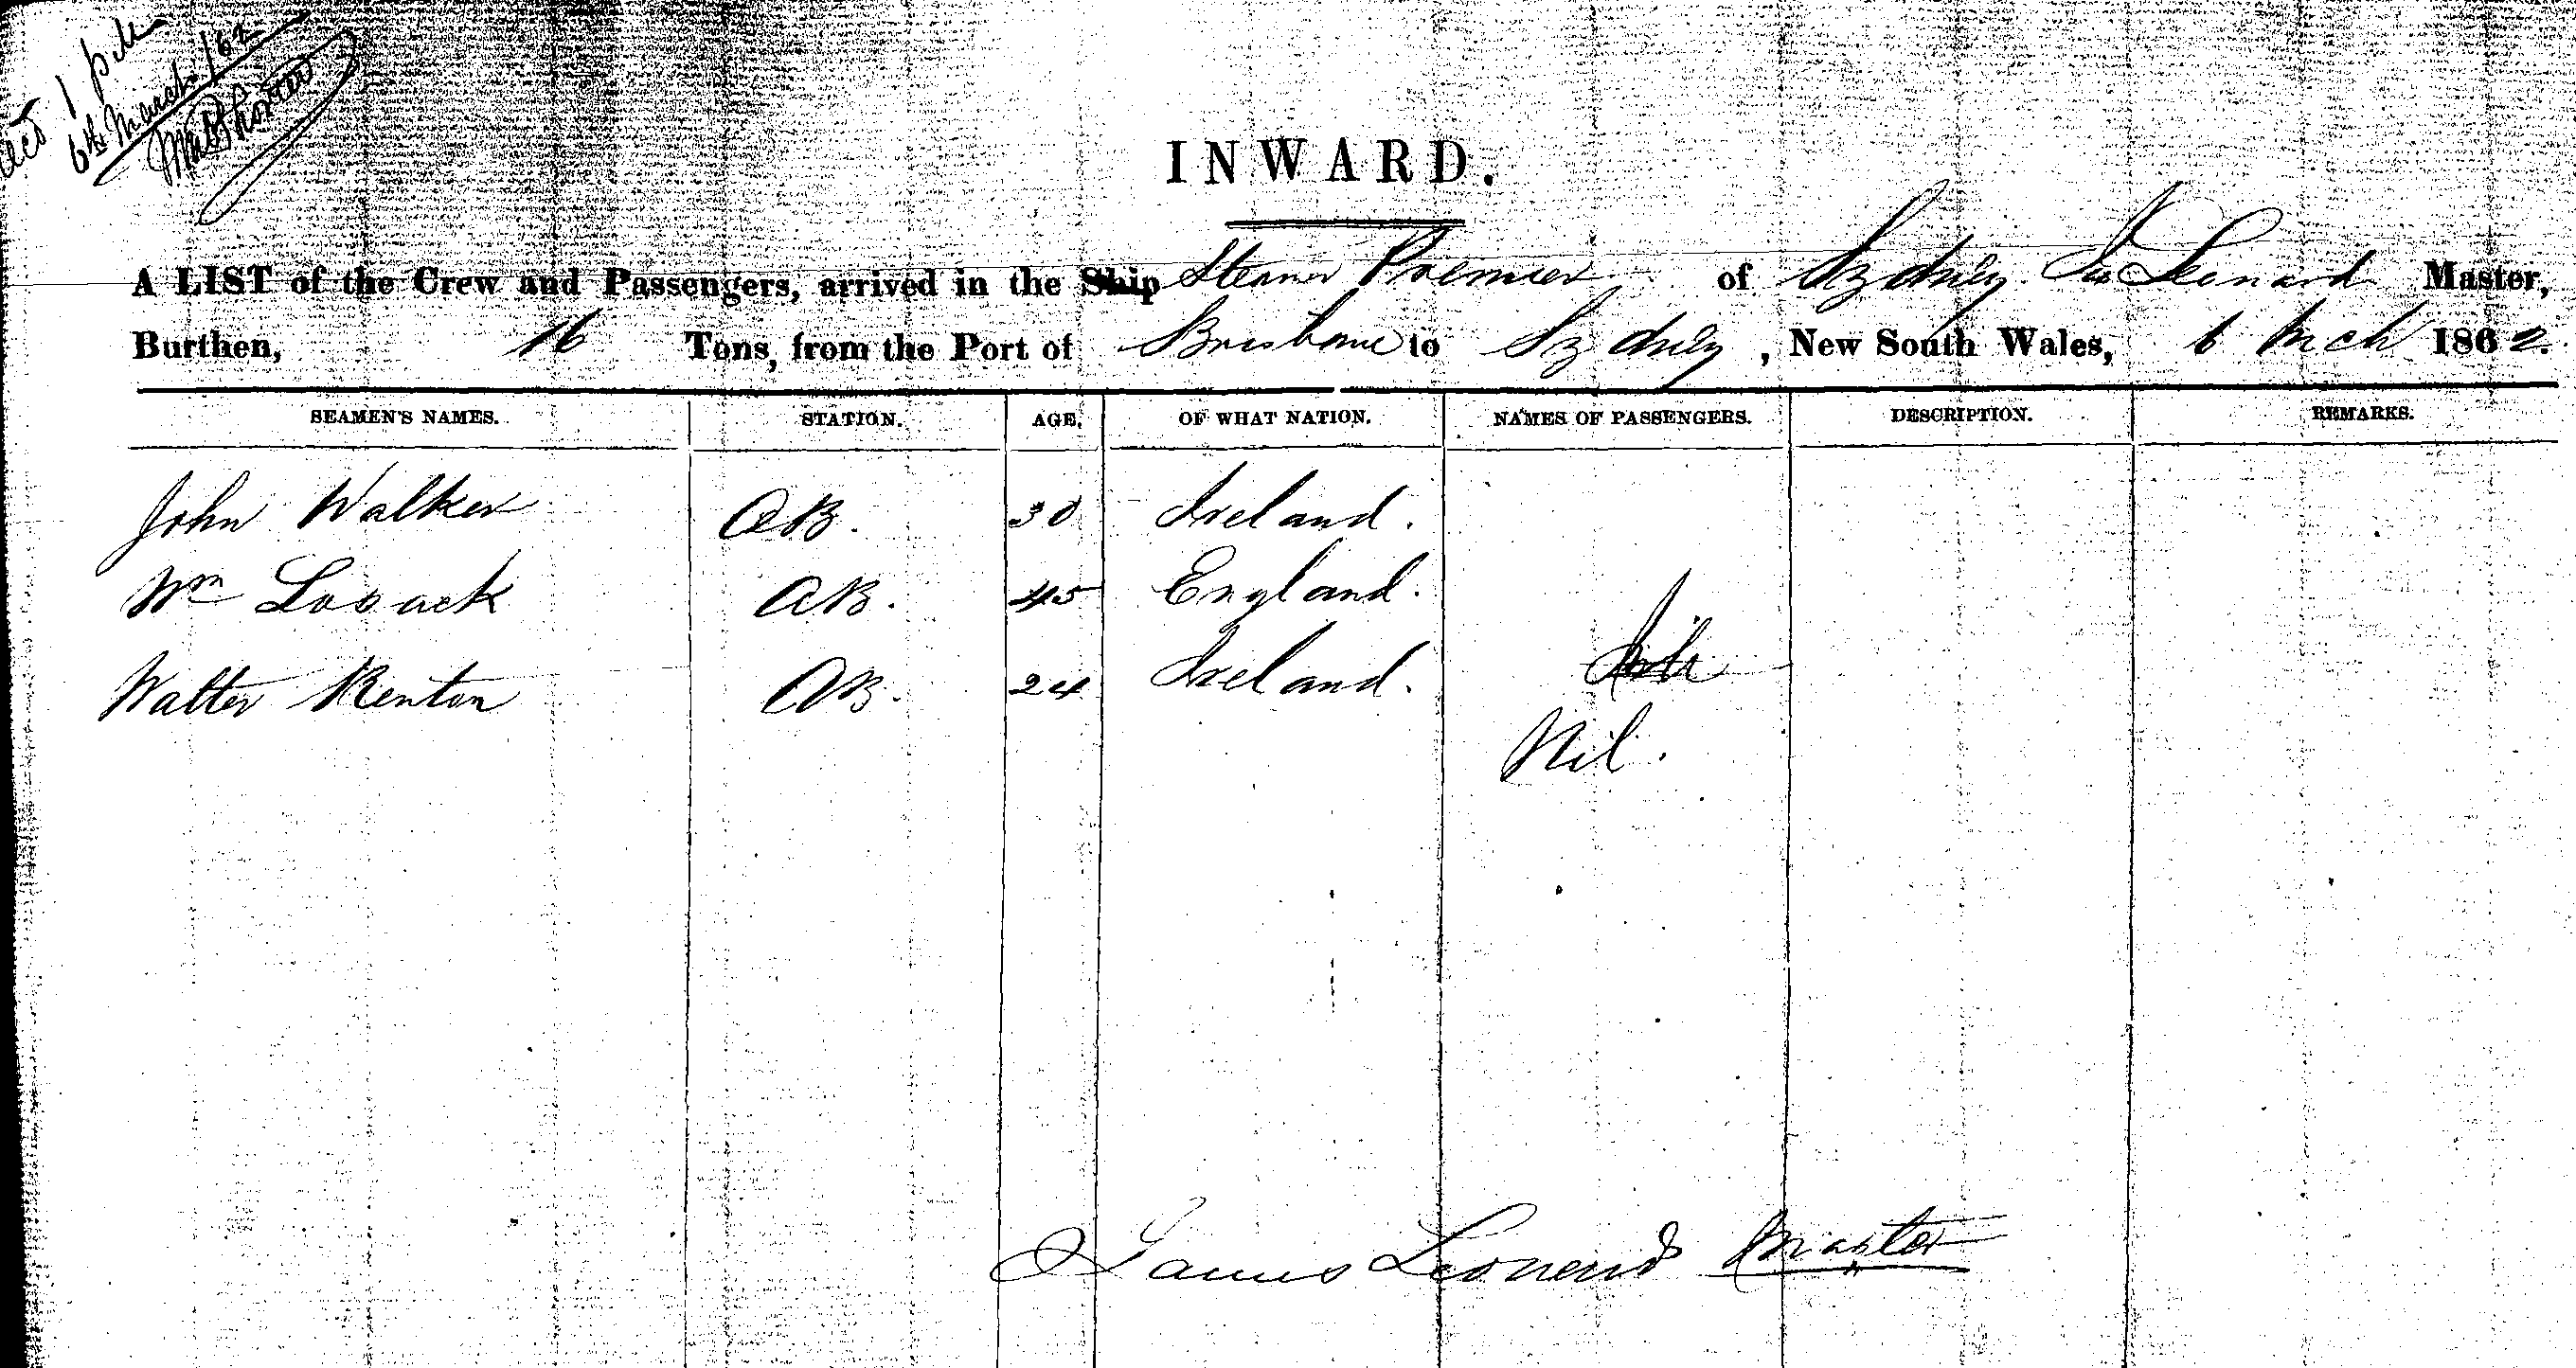 1
6th March /62
INWARD.
A LIST of the Crew and Passengers, arrived in the Ship Steamer Premier of Sydney Jas Leonard Master,
Burthen, 16 Tons, from the Port of Brisbane to Sydney, New South Wales, 6 Mch 1862.
SEAMEN'S NAMES. STATION. AGE. OF WHAT NATION. NAMES OF PASSENGERS. DESCRIPTION. REMARKS.
John Walker AB. 30 Ireland.
Wm Losack AB. 45 England.
Walter Renton AB. 24 Ireland.
Nil.
James Leonard Master